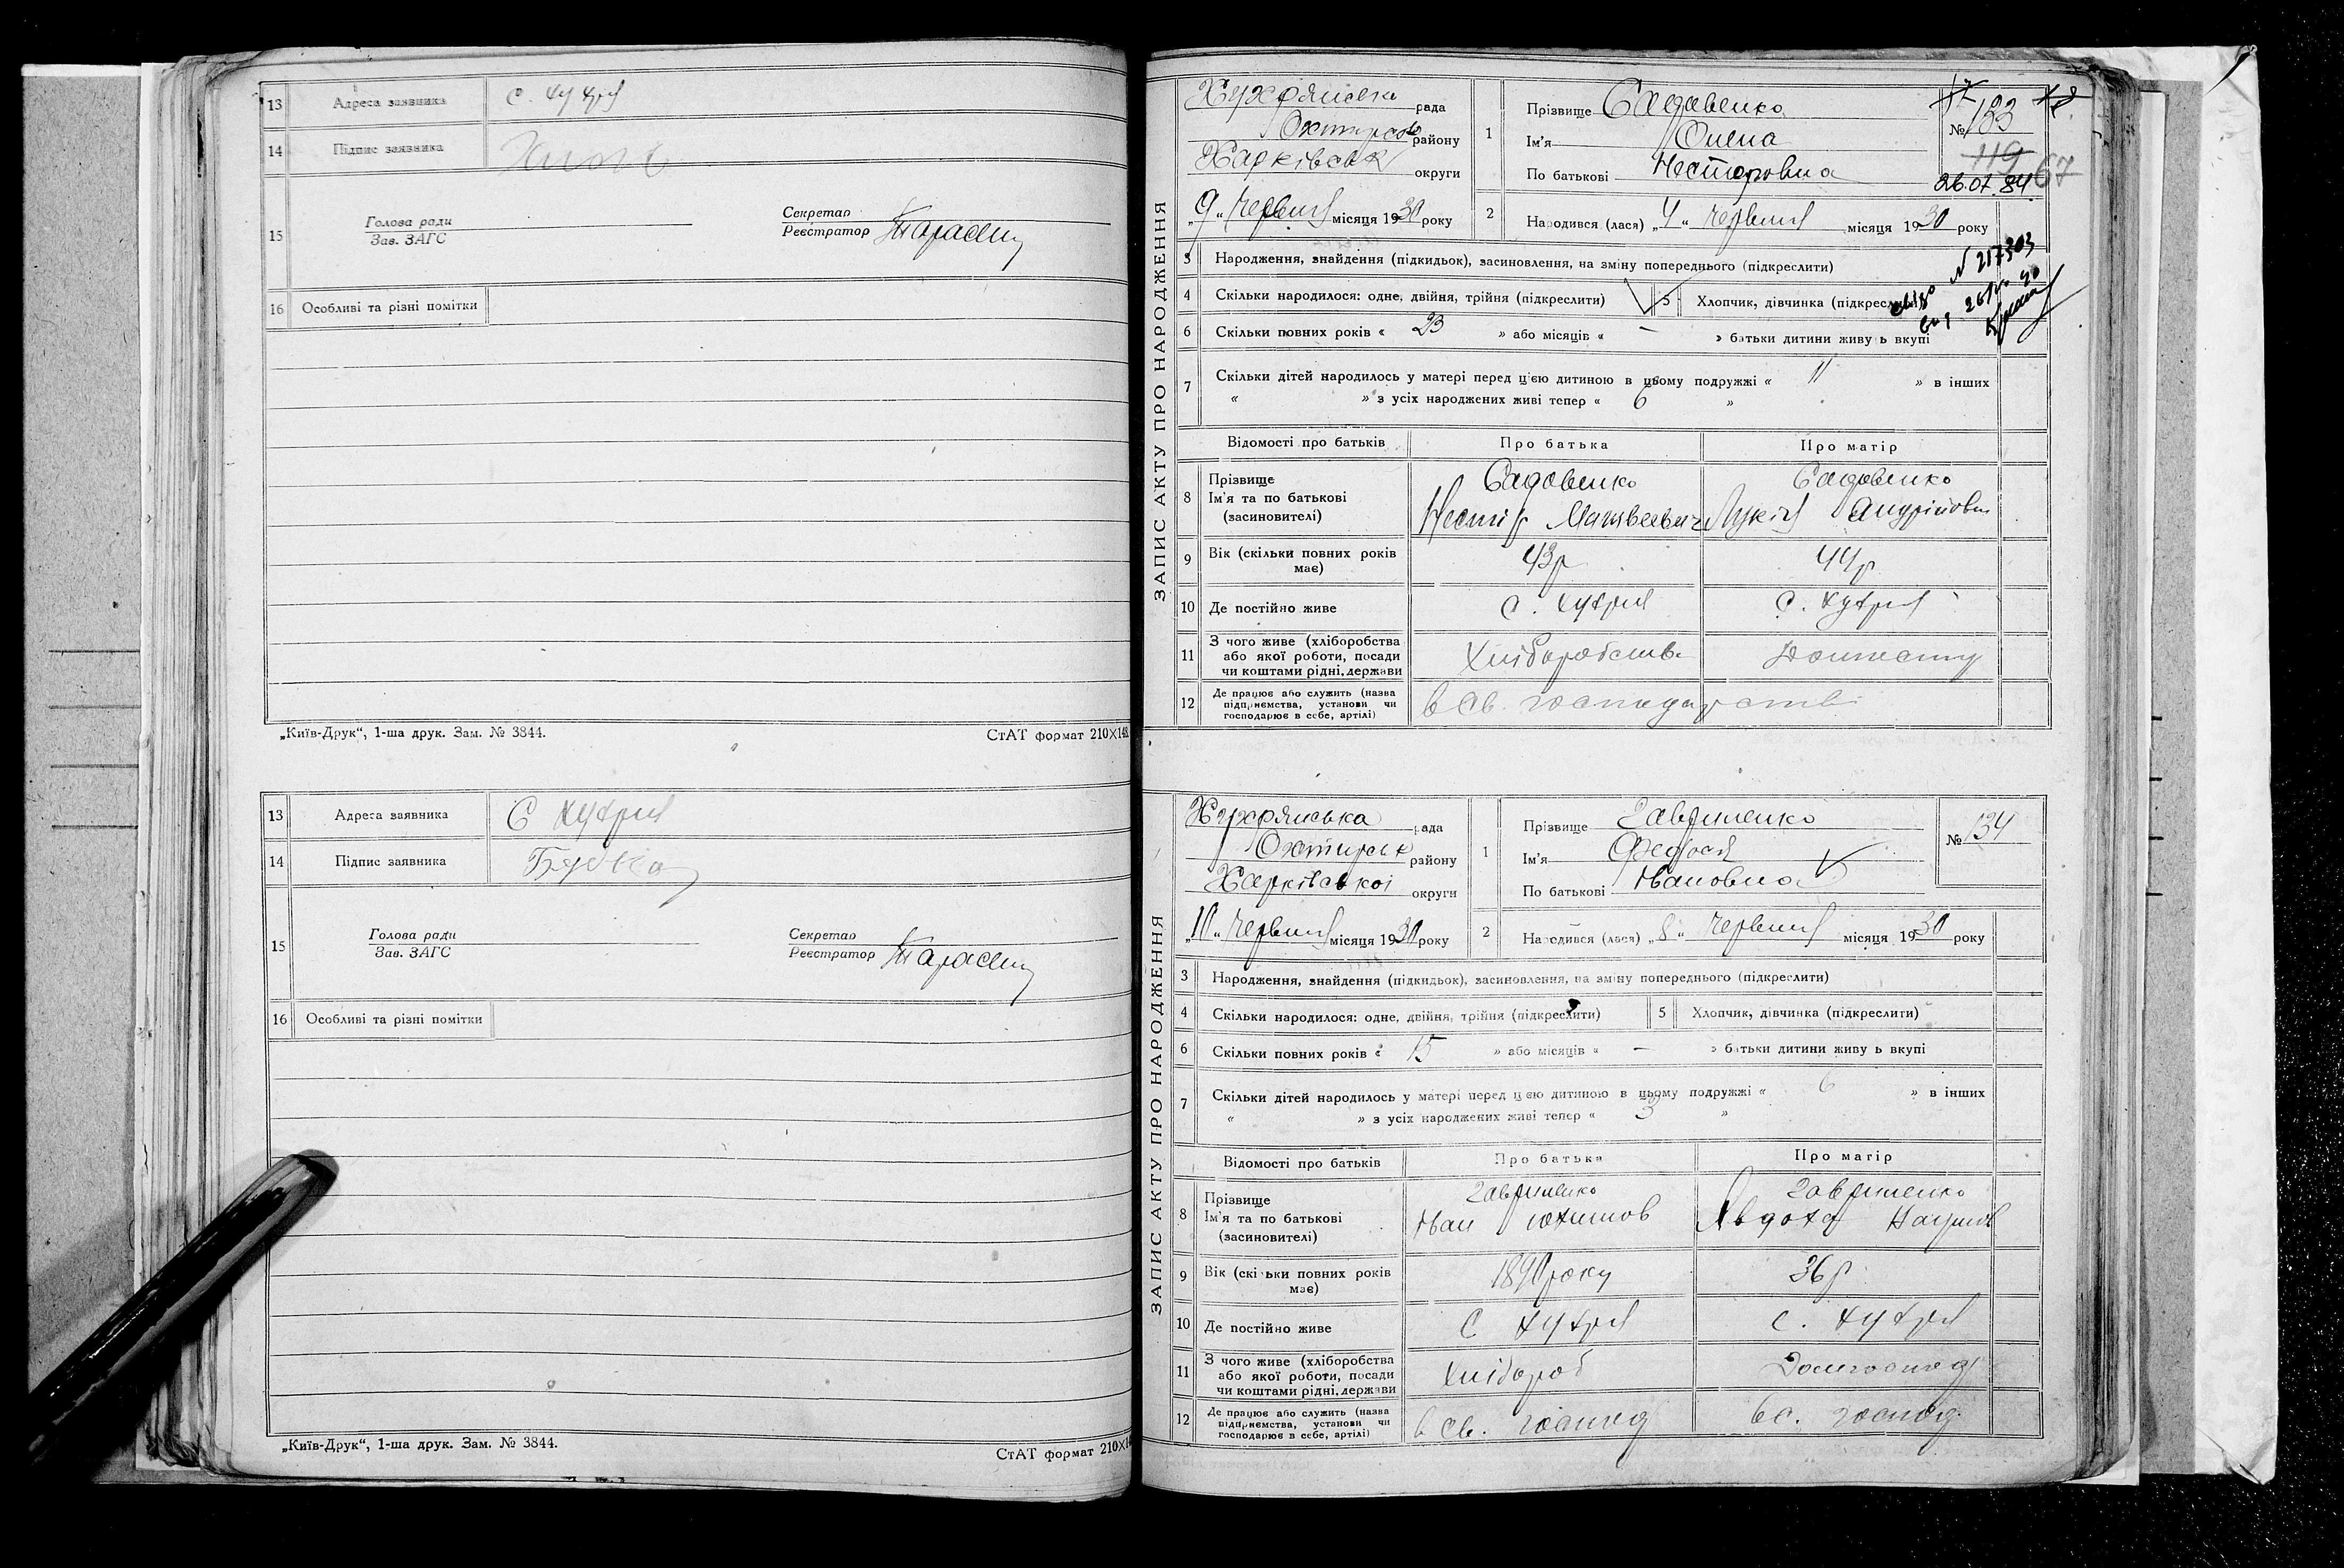 13 Адреса заявника с. Кухря
14 Підпис заявника
15 Голова ради
Зав. ЗАГС
Секретар
Реєстратор Тарасен
16 Особливі та різні помітки
„Київ-Друк“, 1-ша друк. Зам. № 3844.
СтАТ формат 210×148
13 Адреса заявника С Кухря
14 Підпис заявника
15 Голова ради
Зав. ЗАГС
Секретар
Реєстратор Тарасен
16 Особливі та різні помітки
„Київ-Друк“, 1-ша друк. Зам. № 3844.
СтАТ формат 210×14
ЗАПИС АКТУ ПРО НАРОДЖЕННЯ
рада
Охтирськ району
Харківськ округи
„9“ Червня місяця 1930 року
1 Прізвище Садовенко
Ім'я Олена
По батькові Несторовна
№ 133
119 67
26.07.84
2 Народився (лася) „4“ Червня місяця 1930 року
3 Народження, знайдення (підкидьок), засиновлення, на зміну попереднього (підкреслити)
№ 217303
4 Скільки народилося: одне, двійня, трійня (підкреслити)
5 Хлопчик, дівчинка (підкреслити)
6 Скільки повних років « 23 » або місяців « — » батьки дитини живу ь вкупі
7 Скільки дітей народилось у матері перед цією дитиною в цьому подружжі « 11 » в інших
« » з усіх народжених живі тепер « 6 »
Відомості про батьків Про батька Про матір
8 Прізвище
Ім'я та по батькові
(засиновителі)
Садовенко
Нестір Матвеевич
Садовенко
Лукія Андріївна
9 Вік (скільки повних років має) 43р 44р
10 Де постійно живе с. Кухря с. Кухря
11 З чого живе (хліборобства або якої роботи, посади чи коштами рідні, держави Хліборобств.
12 Де працює або служить (назва підприємства, установи чи господарює в себе, артілі) в св. господарстві
ЗАПИС АКТУ ПРО НАРОДЖЕННЯ
рада
Охтирськ району
Харківської округи
„10“ Червня місяця 1930 року
1 Прізвище Гавриленко
Ім'я Федосія
По батькові Івановна
№ 134
2 Народився (лася) „8“ Червня місяця 1930 року
3 Народження, знайдення (підкидьок), засиновлення, на зміну попереднього (підкреслити)
4 Скільки народилося: одне, двійня, трійня (підкреслити)
5 Хлопчик, дівчинка (підкреслити)
6 Скільки повних років « 15 » або місяців « — » батьки дитини живу ь вкупі
7 Скільки дітей народилось у матері перед цією дитиною в цьому подружжі « 6 » в інших
« » з усіх народжених живі тепер « 3 »
Відомості про батьків Про батька Про матір
8 Прізвище
Ім'я та по батькові
(засиновителі)
Гавриленко
Іван Юхимов
Гавриленко
Явдоха
9 Вік (скільки повних років має) 1890 року 36р
10 Де постійно живе с Кухря с. Кухря
11 З чого живе (хліборобства або якої роботи, посади чи коштами рідні, держави Хлібороб Домгоспод
12 Де працює або служить (назва підприємства, установи чи господарює в себе, артілі) в св. господ в с. господ.